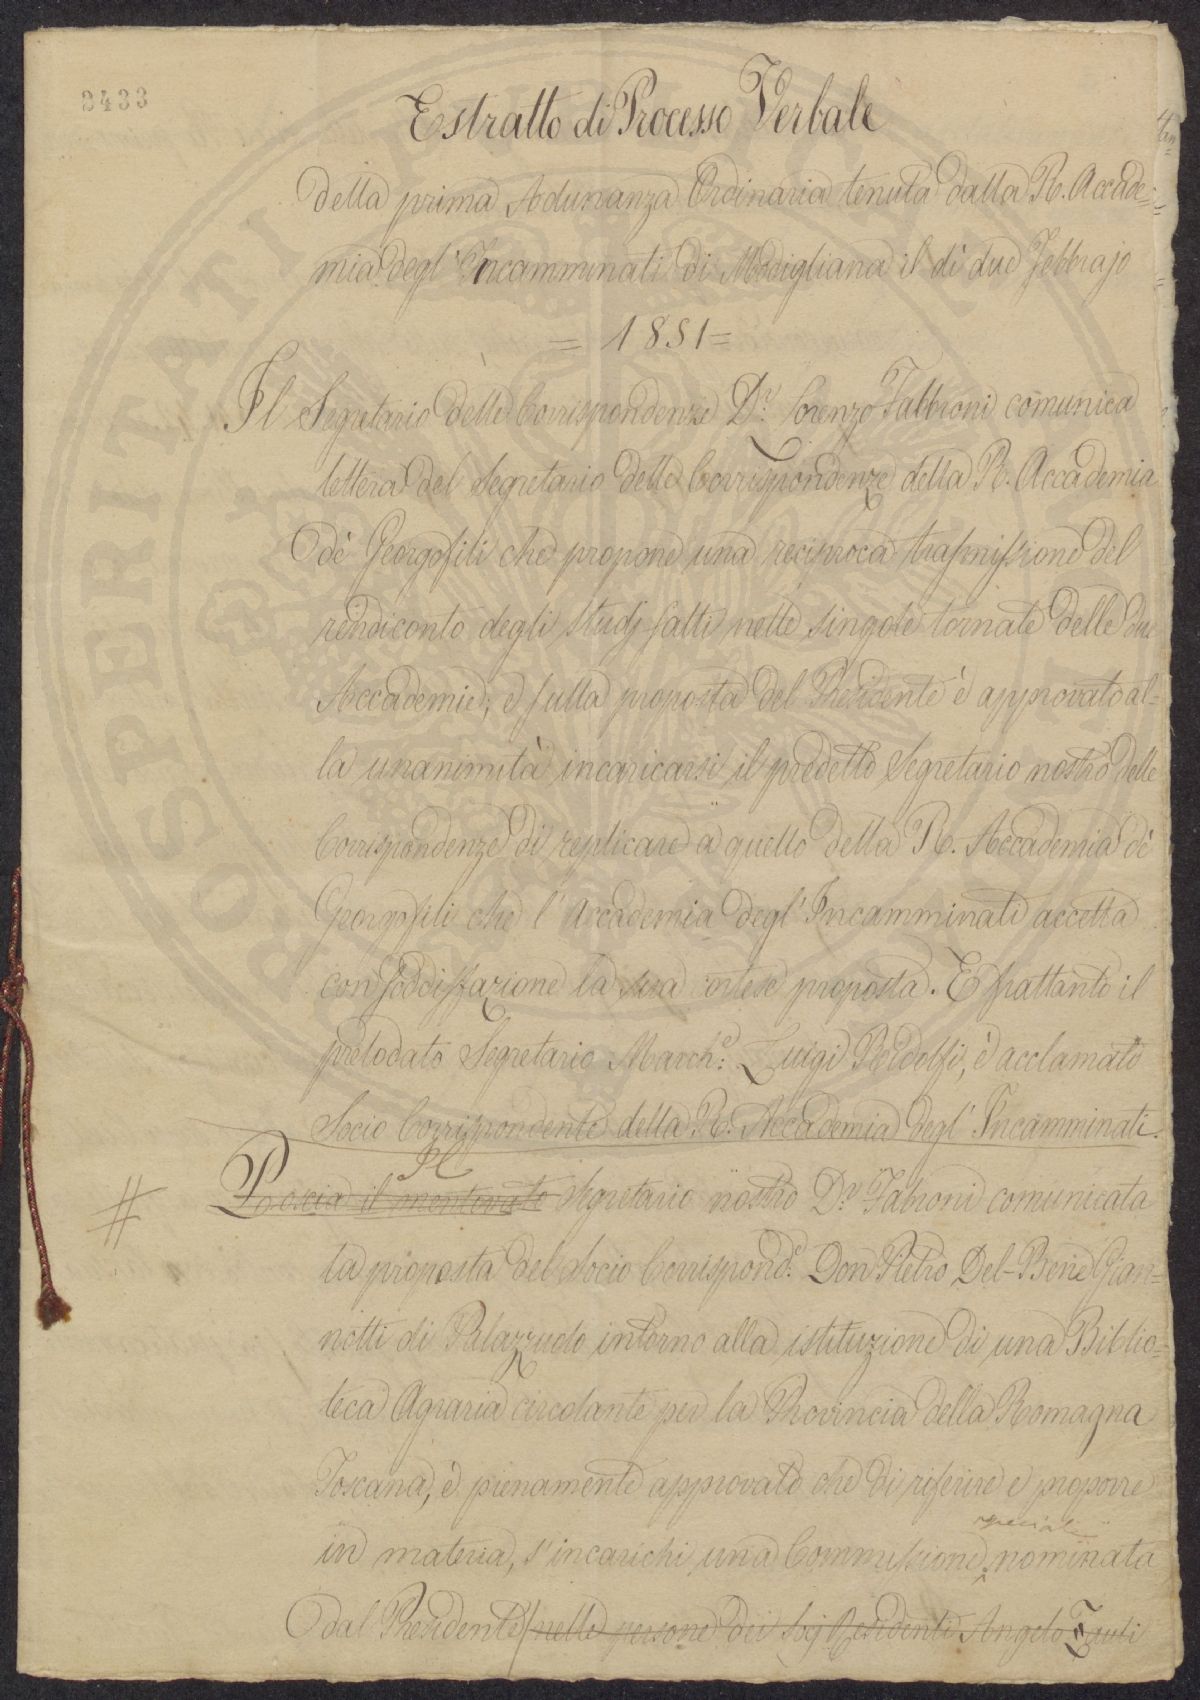 2433
Estratto di Processo Verbale
della prima Adunanza Ordinaria tenuta dalla R. Accade=
mia degl'Incamminati di Modigliana il dì due Febbrajo
= 1851 =
Il Segretario delle Corrispondenze D.r Lorenzo Fabbroni comunica
lettera del Segretario delle Corrispondenze della R. Accademia
de' Georgofili che propone una reciproca trasmissione del
rendiconto degli studj fatti nelle singole tornate delle due
Accademie; e sulla proposta del Presidente è approvato al=
la unanimità incaricarsi il predetto Segretario nostro delle
Corrispondenze di replicare a quello della R. Accademia de'
Georgofili che l'Accademia degl'Incamminati accetta
con soddisfazione la sua cortese proposta. E frattanto il
prelodato Segretario March.e Luigi Ridolfi, è acclamato
Socio Corrispondente della R. Accademia degl'Incamminati.
Il
# Poscia il mentovato Segretario nostro D.r Fabroni comunicata
la proposta del Socio Corrispond.e Don Pietro Del-Bene Gian=
notti di Palazzuolo intorno alla istituzione di una Biblio=
teca Agraria circolante per la Provincia della Romagna
Toscana, è pienamente approvato che di riferire e proporre
speciale
in materia, s'incarichi una Commissione nominata
dal Presidente nelle persone dei Soci Residenti Angelo
PROSPERITATI PUBLICAE